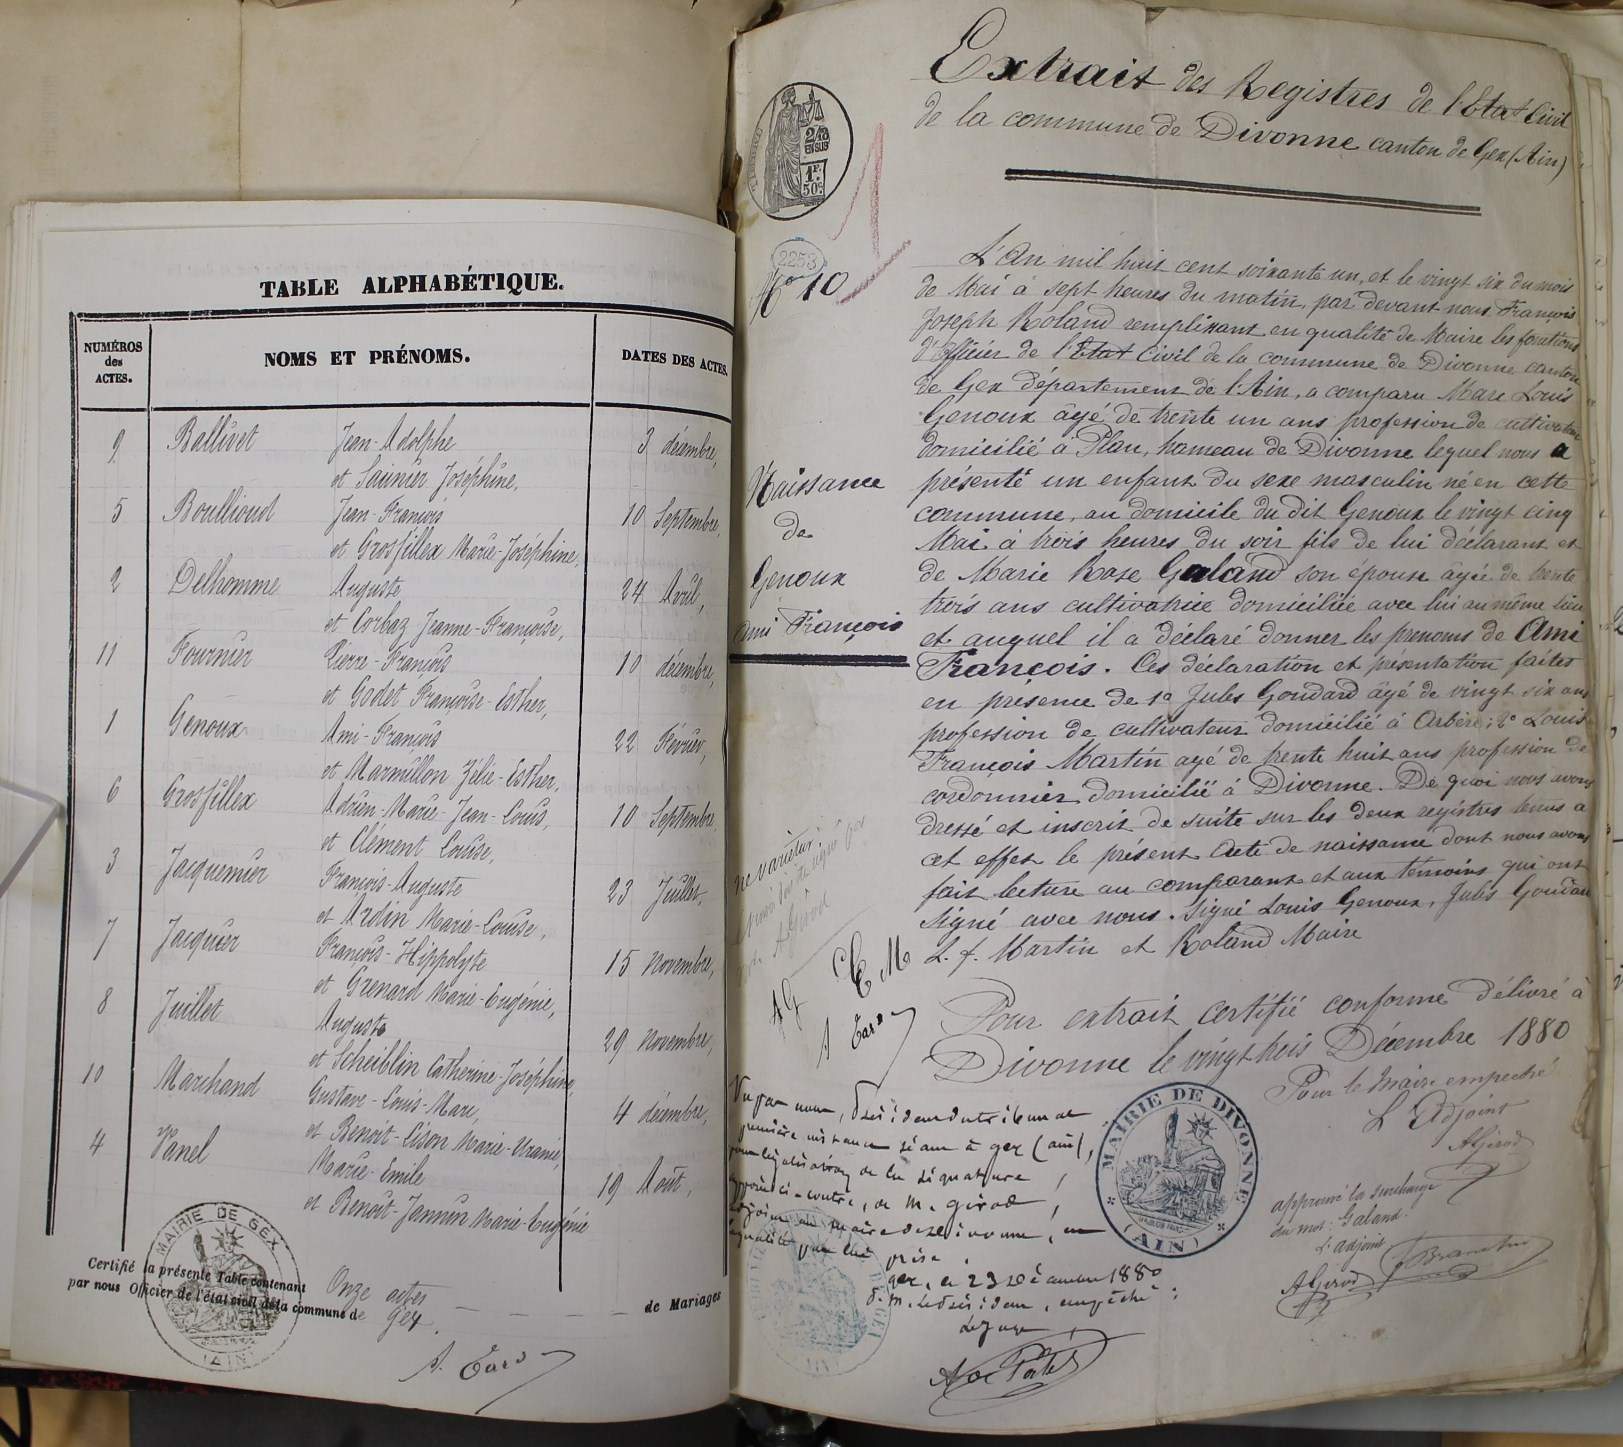 TABLE ALPHABÉTIQUE.
NUMÉROS des ACTES.
NOMS ET PRÉNOMS.
DATES DES ACTES.
9 Ballivet Jean-Adolphe 3 décembre,
et Saunier Joséphine,
5 Boullioud Jean-François 10 Septembre,
et Grosfillex Marie-Joséphine,
2 Delhomme Auguste 24 Avril,
et Corbaz Jeanne-Françoise,
11 Fournier Pierre-François 10 décembre,
et Godet Françoise-Esther,
1 Genoux Ami-François 22 Février,
et Marmillon Zélie-Esther,
6 Grosfillex Adrien-Marie-Jean-Louis, 10 Septembre,
et Clément Louise,
3 Jacquemier François-Auguste 23 Juillet,
et Ardin Marie-Louise,
7 Jacquier François-Hippolyte 15 novembre,
et Grenard Marie-Eugénie,
8 Juillet Auguste 29 novembre,
et Scheiblin Catherine-Joséphine,
10 Marchand Gustave-Louis-Marc, 4 décembre,
et Benoit-Lison Marie-Uranie,
4 Vanel Marie-Emile 19 Août,
et Benoît-Jannin Marie-Eugénie
MAIRIE DE GEX
(AIN)
Certifié la présente Table contenant Onze actes de Mariages
par nous Officier de l'état civil de la commune de Gex.
2/10 EN SUS
1F. 50c.
2253
No 10
1
Extrait des Registres de l'Etat Civil
de la commune de Divonne canton de Gex (Ain)
L'An mil huit cent soixante un, et le vingt six du mois
de Mai à sept heures du matin, par devant nous François
Joseph Roland remplissant en qualité de Maire les fonctions
d'Officier de l'Etat Civil de la commune de Divonne canton
de Gex département de l'Ain, a comparu Marc Louis
Genoux âgé de trente un ans profession de cultivateur
domicilié à Plan, hameau de Divonne lequel nous a
présenté un enfant du sexe masculin né en cette
commune, au domicile du dit Genoux le vingt cinq
Mai à trois heures du soir fils de lui déclarant et
de Marie Rose Galand son épouse âgée de trente
trois ans cultivatrice domiciliée avec lui au même lieu
et auquel il a déclaré donner les prenoms de Ami
François. Ces déclaration et présentation faites
en présence de 1o Jules Goudard âgé de vingt six ans
profession de cultivateur domicilié à Arbère; 2o Louis
François Martin agé de trente huit ans profession de
cordonnier domicilié à Divonne. De quoi nous avons
dressé et inscrit de suite sur les deux registres tenus à
cet effet le présent Acte de naissance dont nous avons
fait lecture au comparant et aux témoins qui ont
signé avec nous. Signé Louis Genoux, Jules Goudard
L. f. Martin et Roland Maire
Naissance
de
Genoux
Ami François
ne varietur
Pour extrait certifié conforme délivré à
Divonne le vingt trois Décembre 1880
Pour le Maire empeché
L'Adjoint
AGirod
MAIRIE DE DIVONNE
(AIN)
approuvé la surcharge
du mot: Galand.
L'adjoint
AGirod
Vu par nous, Président du tribunal de
première instance séant à gex (ain),
pour légalisation de la signature
apposée ci-contre, de M. girod,
adjoint au maire de divonne, en
qualité par lui prise.
gex, le 23 décembre 1880
P. M. le Président, empêché:
Le Juge,